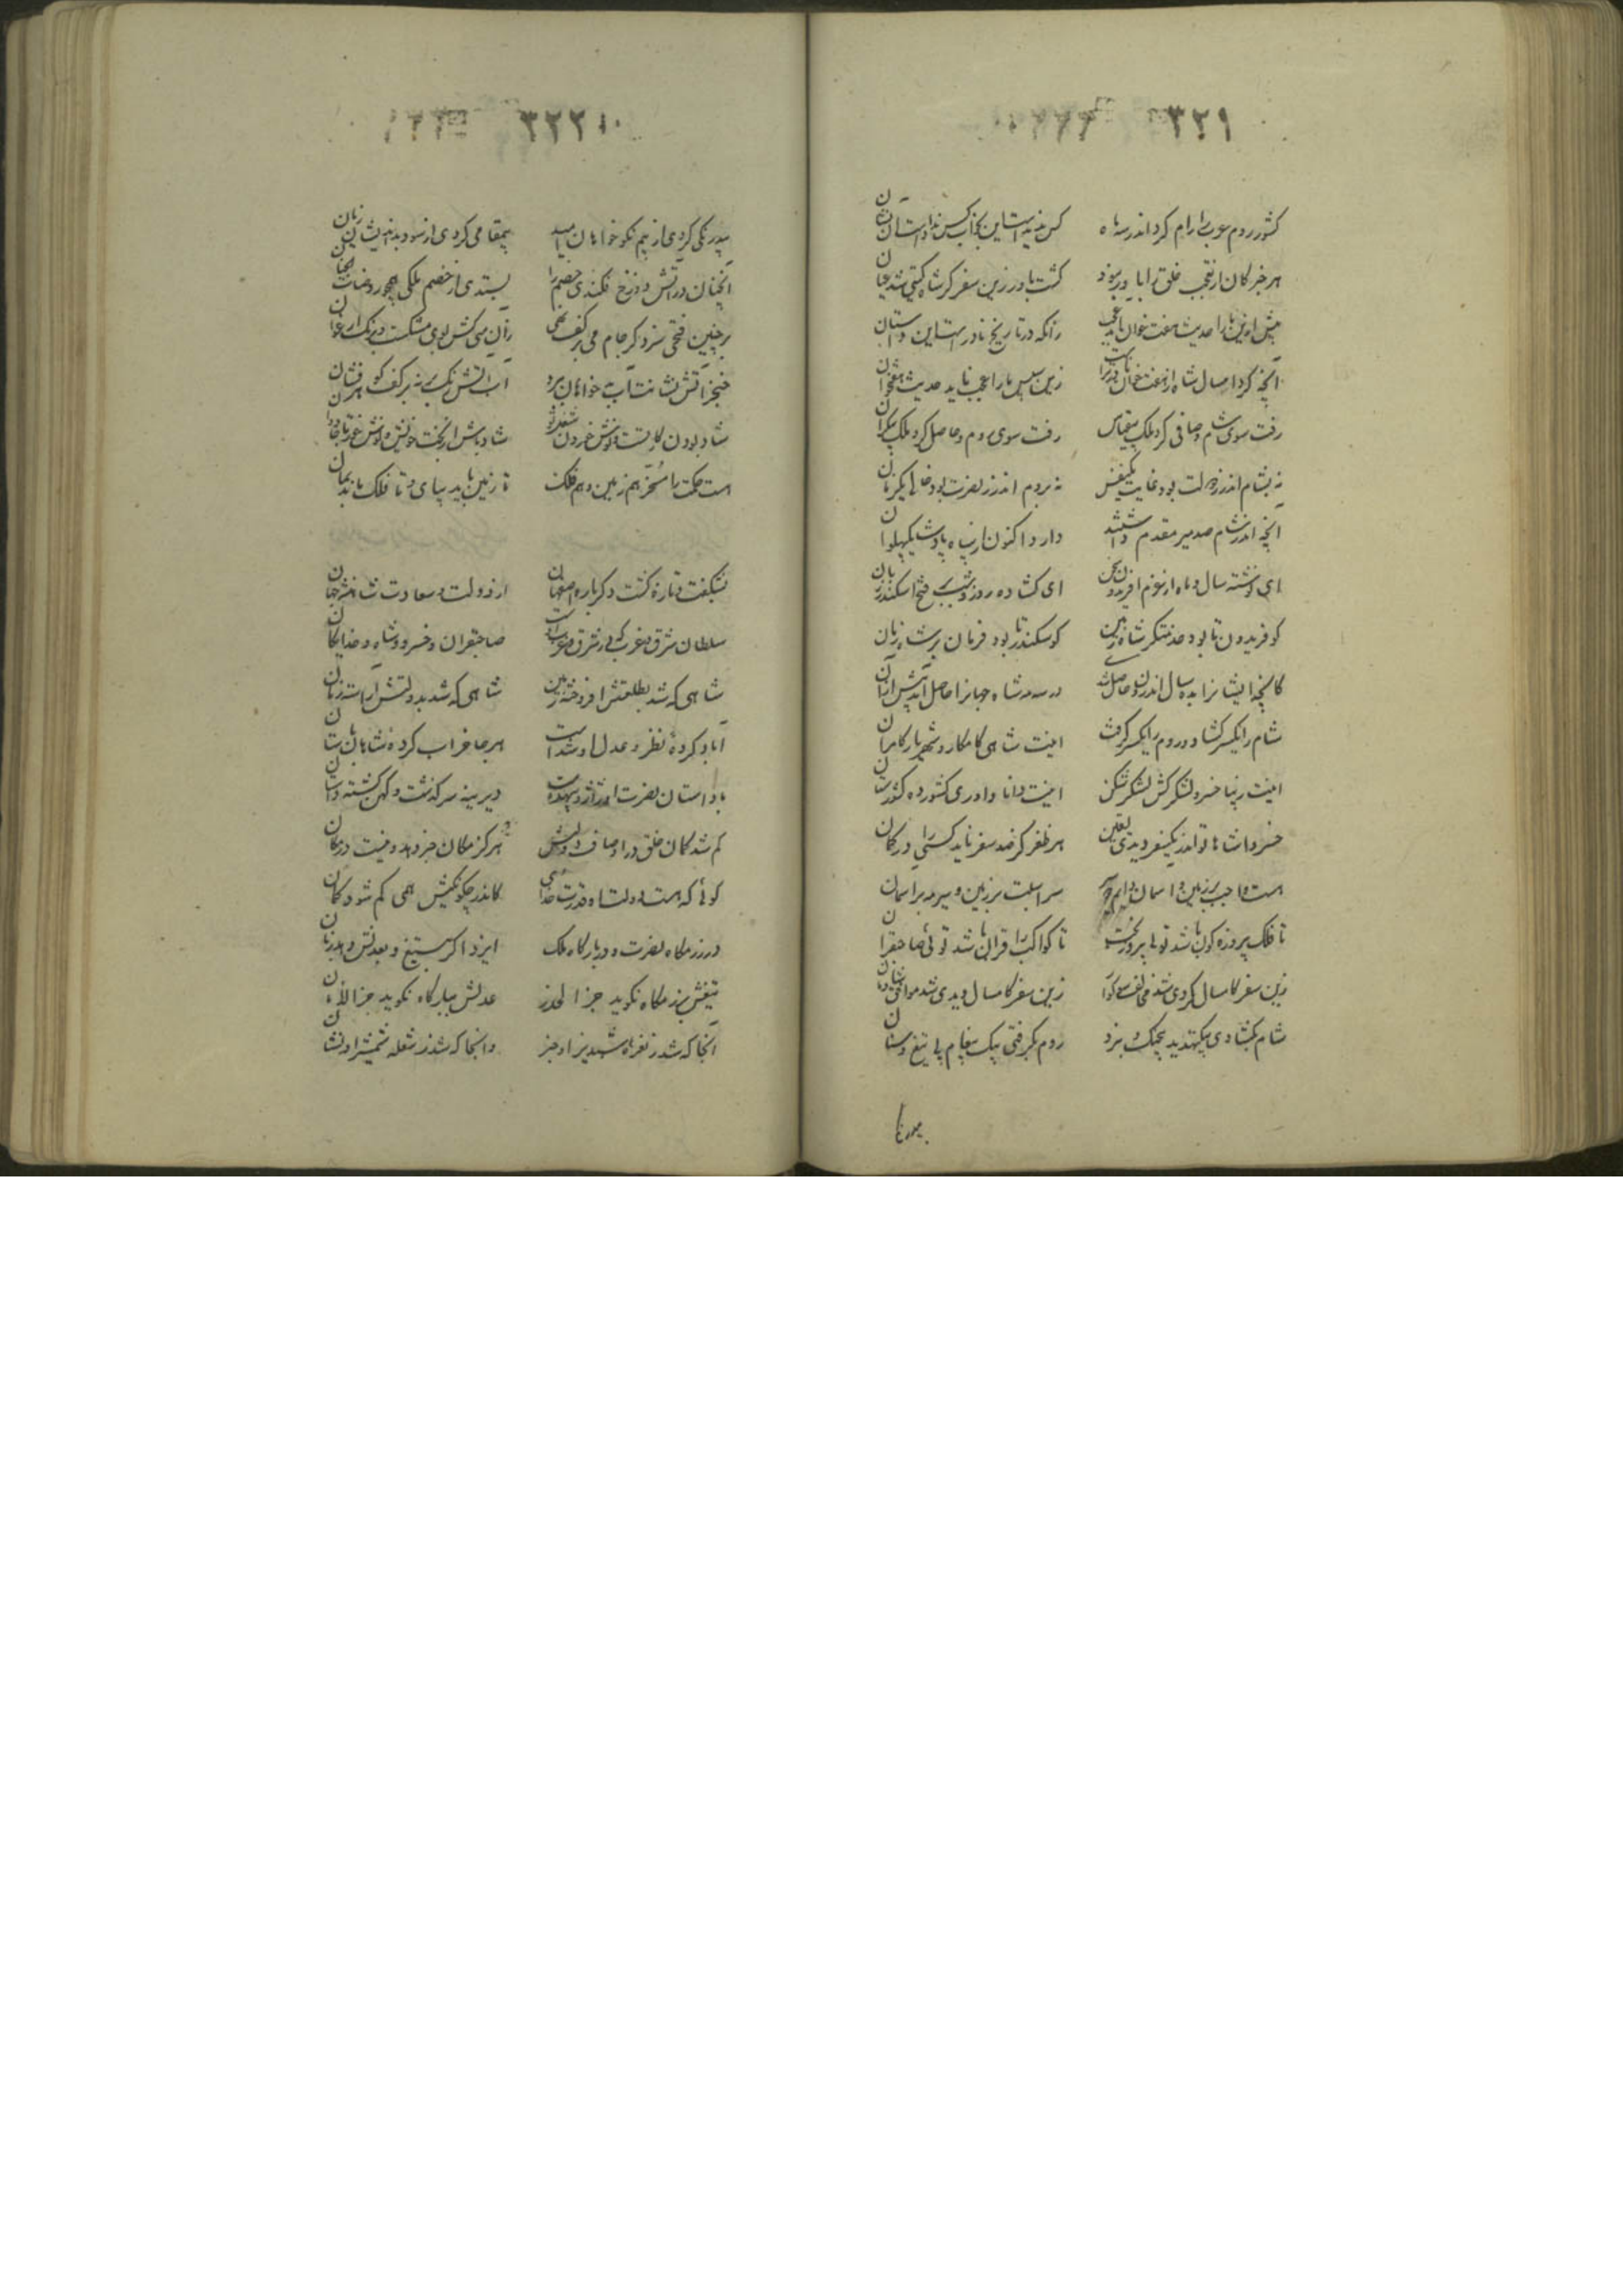 ۳۲۹
کشور روم و عرب را رام کرد اندر سه ماه کس ندیدست این بخواب و کس نداد است آن نشان
هر خبر کان از تعجب خلق را باور نبود گشت باور زین سفر کز شاه گیتی شد عیان
پیش ازین ما را حدیث هفت خوان آمد عجب زانکه در تاریخ نادر هست این داستان
آنچه کرد امسال شاه از هفت خوان نادرترا زین سپس ما را عجب ناید حدیث هفتخوان
رفت سوی شام و صافی کرد ملک بیقیاس رفت سوی روم و حاصل کرد ملک بیکران
نه بشام اندر ز دولت بود غایب یکنفس نه بروم اندر ز نصرت بود خالی یکزمان
آنچه اندر شام صد میر مقدم داشتند دارد اکنون از سپاه پادشا یک پهلوان
ای نوشته سال و ماه از عزم افریدون سخن ای گشاده روز و شب بر فتح اسکندر زبان
کو فریدون تا بود خدمتگر شاه زمین کو سکندر تا بود فرمان بر شاه زمان
کانچه ایشانرا بده سال اندرون حاصل شدی در سه مه شاه جهانرا حاصل آمد بیش از آن
شام را یکسر گشاد و روم را یکسر گرفت اینت شاهی کامکار و شهریار کامران
اینت زیبا خسرو لشکرکش لشکر شکن اینت دانا داور کشورده کشورستان
خسروا شاها تو اندر یکسفر دیدی یقین هر ظفر کز صد سفر ناید کسی را در گمان
هست واجب بر زمین و آسمان دایم سر اسبت بر زمین و سیر مه بر آسمان
تا فلک پیروزه گون باشد تو با پیروز بخت تا کواکب را قران باشد تو باشی صاحبقران
زین سفر کامسال کردی شد مخالف زین سفر کامسال دیدی شد موافق شادمان
شام بگشادی بیک تهدید بی جنگ و نبرد روم بگرفتی بیک پیغام بی تیغ و سنان
۳۲۳۰
بیدرنگی کردی از بیم نکوخواهان امید بیمقامی کردی از سود بداندیشان زیان
آنچنان در آتش دوزخ فکندی خصم را بستدی از خصم ملکی همچو روضات جنان
بر چنین فتحی سزد گر جام می بر کف نهی زان می کش بوی مشکست و رنگ ارغوان
خنجر آتش فشانت آب بدخواهان ببرد آب آتش رنگ نه بر کف گوهر فشان
شاد بودن کار تست و نوش خوردن شاد باش از بخت خویش و نوش خور تا جاودان
هست حکمت را مسخر هم زمین و هم فلک تا زمین باید بپای و تا فلک ماند بمان
بشکفت و تازه گشت دگرباره اصفهان از دولت و سعادت شاهنشه جهان
سلطان شرق و غرب که در شرق و غرب اوست صاحبقران و خسرو و شاه و خدایگان
شاهی که شد بطلعتش افروخته زمین شاهی که شد بدولتش آراسته زمان
آباد کرده نظر و عدل او شد است هر جا خراب کرده شاهان باستان
با داستان نصرت او دیرینه سرگذشت و کهن گشته داستان
گم شد گمان خلق در اوصاف دولتش هرگز مکان چیز
گوئی که هست دولت او قدرت خدای کاندر چگونگیش همی گم شود گمان
در رزمگاه نصرت و در بارگاه ملک ایزد
تیغش برزمگاه نگوید جز الحذر عدلش ببارگاه نگوید جز الامان
آنجا که شد ز نعره شبدیز او خبر وانجا که شد ز شعله شمشیر او نشان